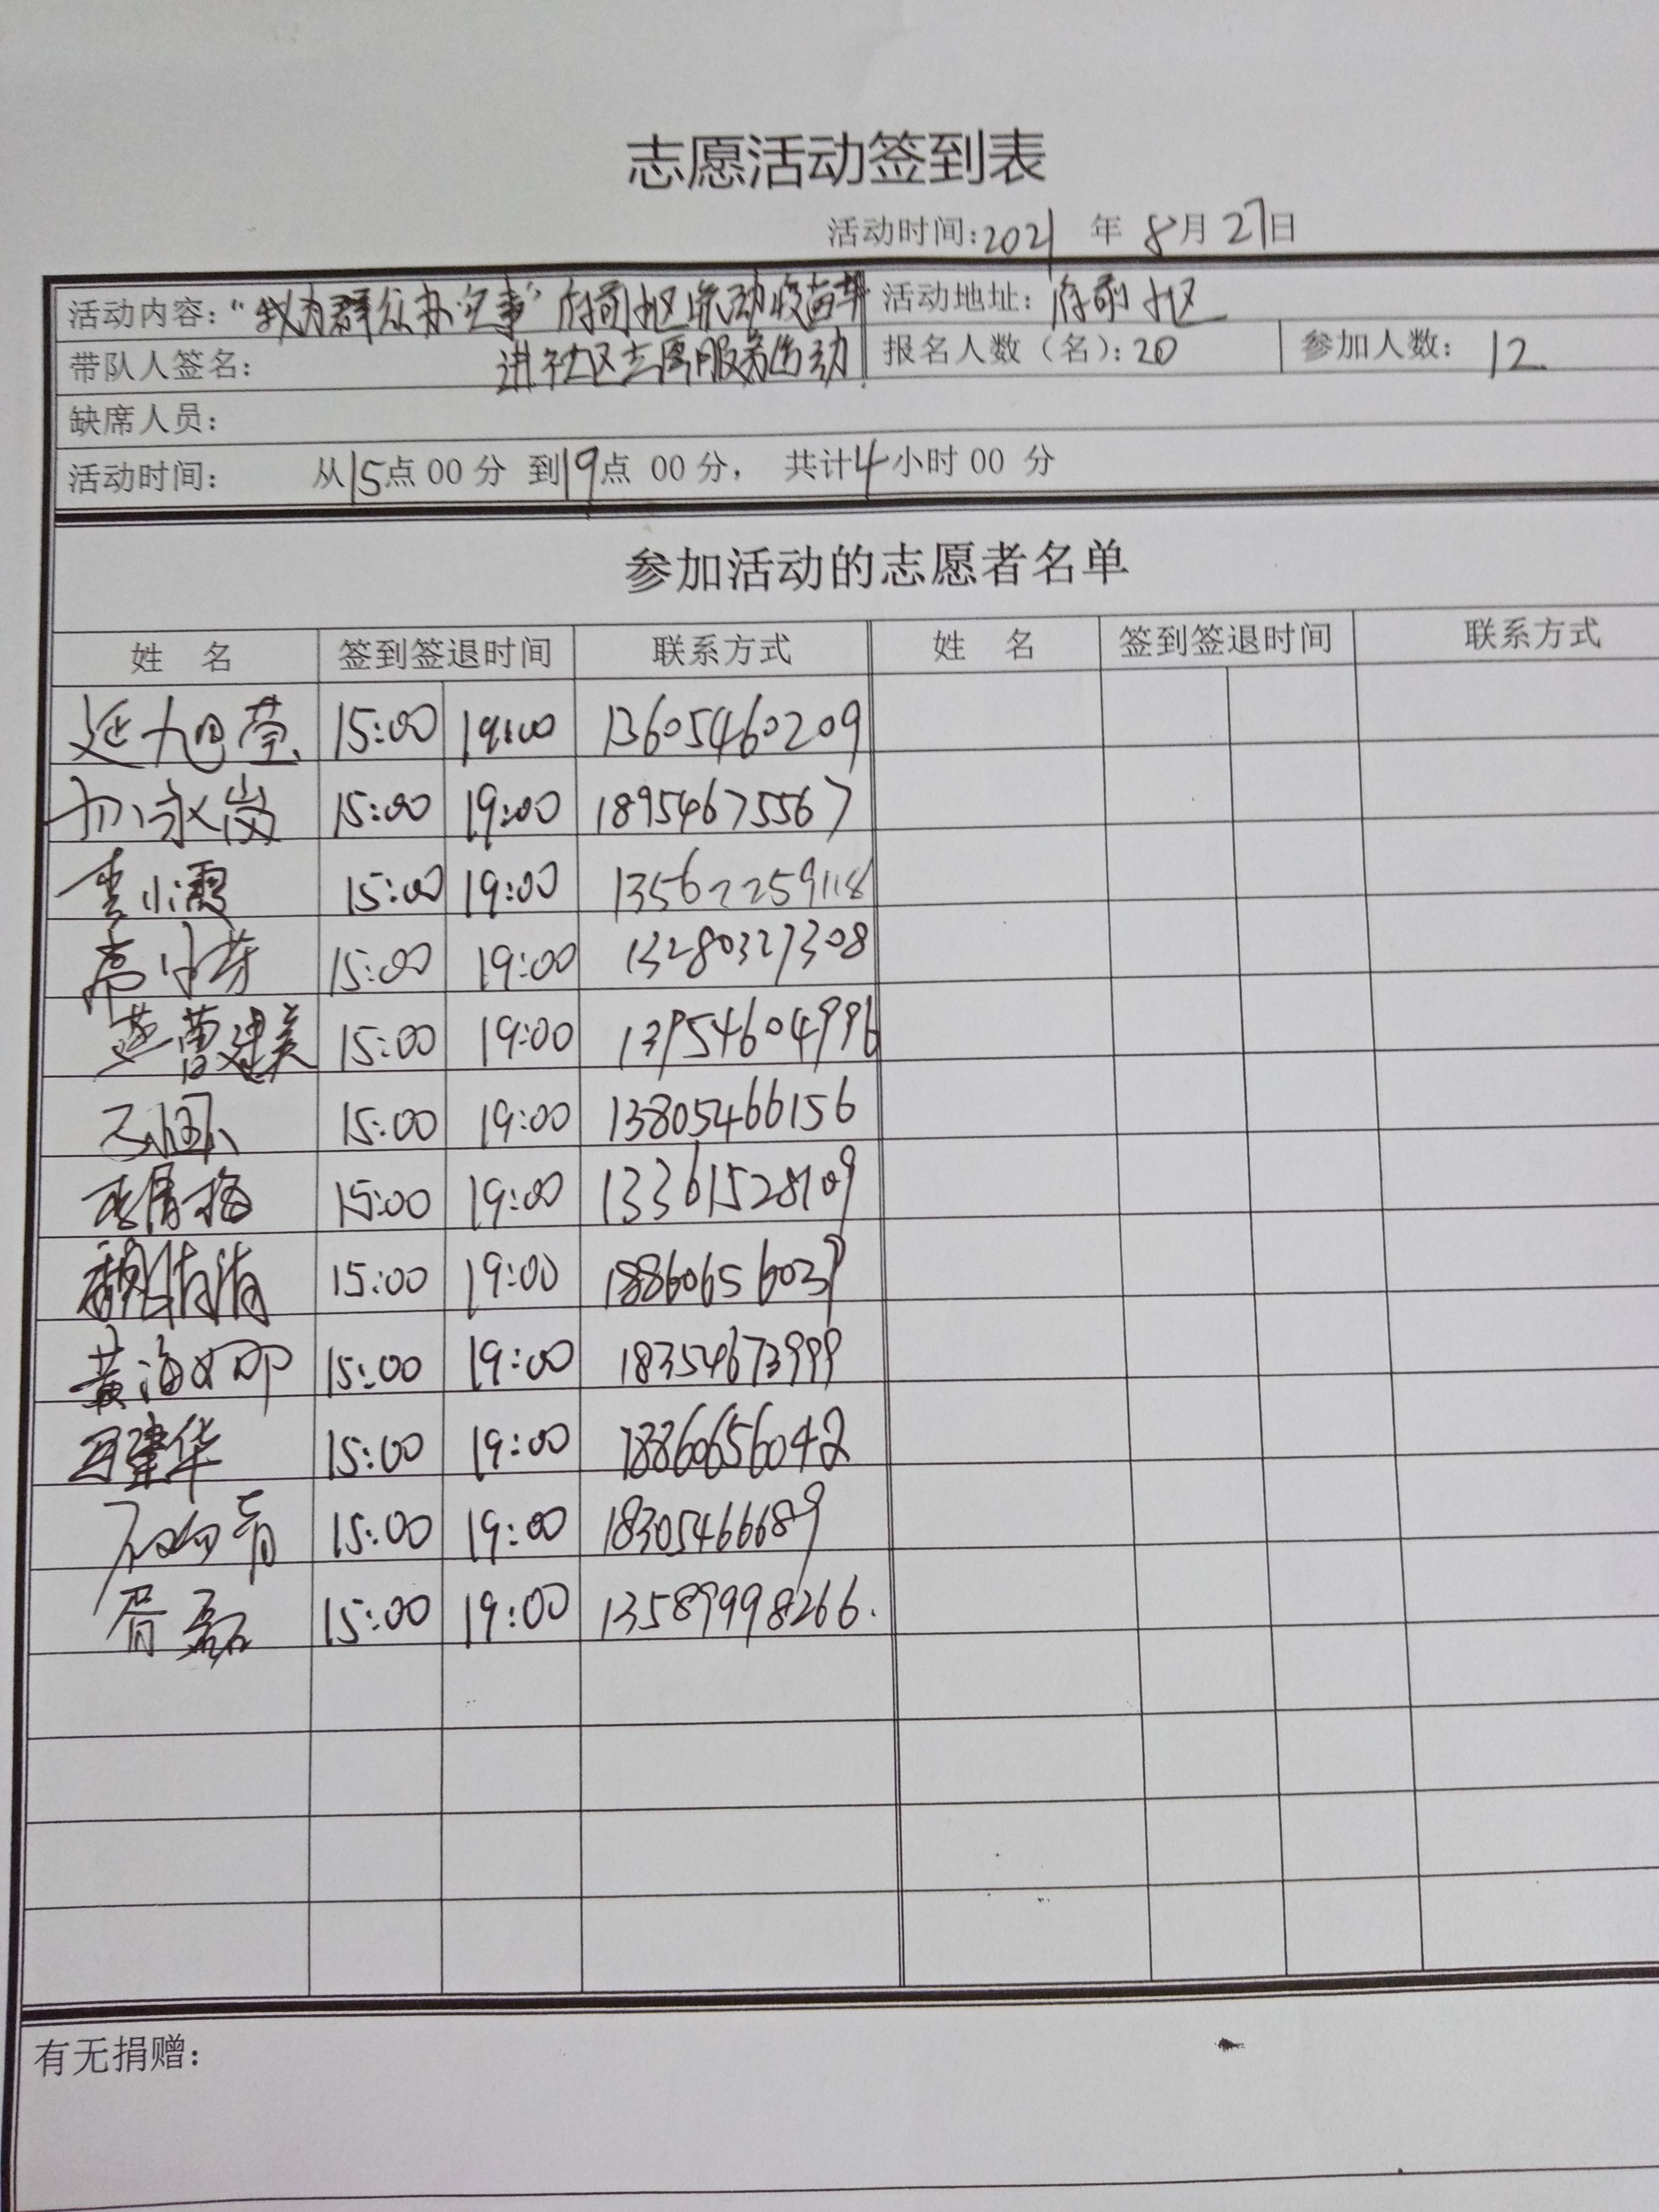 志愿活动签到表
活动时间:2021 年 8月27日
活动内容:“我为群众办实事”府前社区流动疫苗车 活动地址: 府前社区
带队人签名: 进社区志愿服务活动 报名人数(名):20 参加人数: 12
缺席人员:
活动时间: 从15点00分 到19点 00分, 共计4小时00 分
参加活动的志愿者名单
姓 名 签到签退时间 联系方式 姓 名 签到签退时间 联系方式
延旭莹 15:00 19:00 13605460209
永岗 15:00 19:00 18954675567
李小霞 15:00 19:00 13562259118
高 芳 15:00 19:00 13280327308
燕曹建美 15:00 19:00 13954604996
15:00 19:00 13805466156
15:00 19:00 13361528109
魏倩倩 15:00 19:00 18860656039
黄海娜 15:00 19:00 18354673999
建华 15:00 19:00 18860656042
15:00 19:00 18305466689
胥磊 15:00 19:00 13589998266.
有无捐赠: